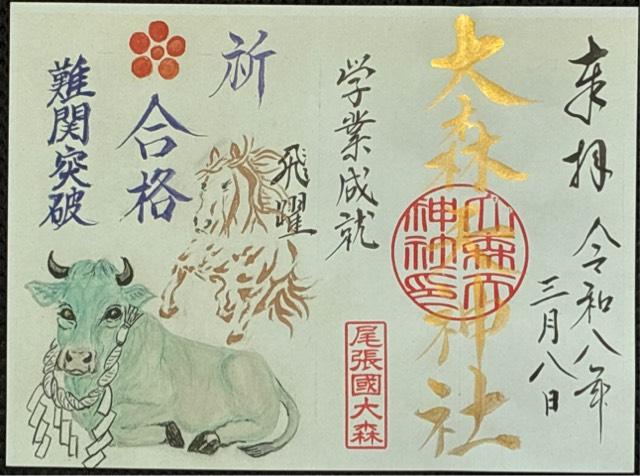 奉拝
令和八年
三月八日
大森天神社
大森天
神社印
尾張國大森
学業成就
飛躍
祈
合格
難関突破